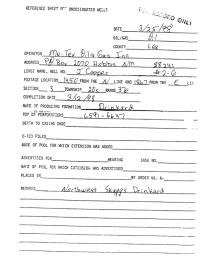 REFERENCE SHEET FOR UNDESIGNATED WELLS
RECORD ONLY
DATE 3/25/98
OIL/GAS Oil
COUNTY Lea
OPERATOR Me-Tex Oil & Gas Inc
ADDRESS PO Box 2070 Hobbs NM 88241
LEASE NAME, WELL NO. J Cooper #2-6
FOOTAGE LOCATION 1450 FROM THE N LINE AND FROM THE E LI
SECTION 3 TOWNSHIP 20s RANGE 37e
COMPLETION DATE 3/12/98
NAME OF PRODUCING FORMATION Drinkard
TOP OF PERFORATIONS 6591-6647
DEPTH TO CASING SHOE
C-123 FILED
NAME OF POOL FOR WHICH EXTENSION WAS ASKED
ADVERTISED FOR HEARING CASE NO.
NAME OF POOL FOR WHICH EXTENSION WAS ADVERTISED
PLACED IN BY ORDER NO. R-
REMARKS Northwest Skaggs Drinkard